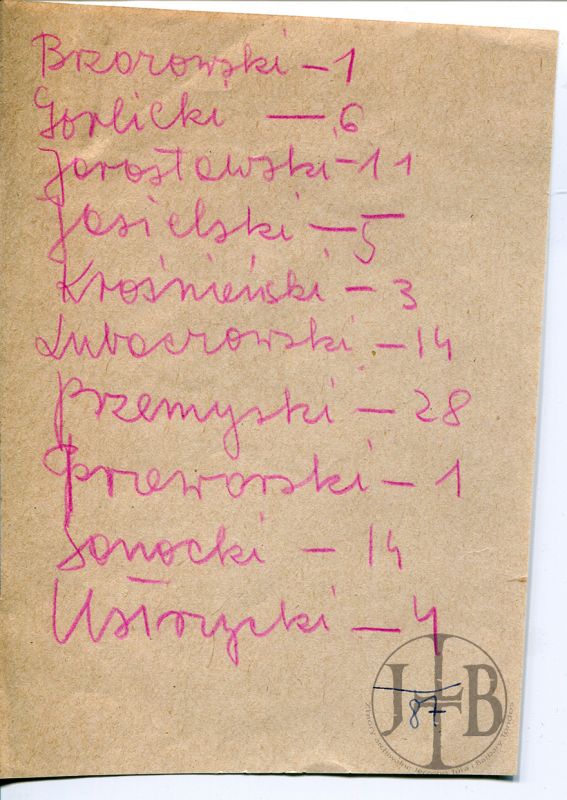 Brzozowski – 1
Gorlicki — 6
Jarosławski – 11
Jasielski – 5
Krośnieński – 3
Lubaczowski – 14
Przemyski – 28
Przeworski – 1
Sanocki – 14
Ustrzycki – 4
87
J B